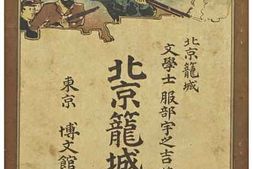 北京籠城
文學士 服部宇之吉
北京籠城
東京 博文館